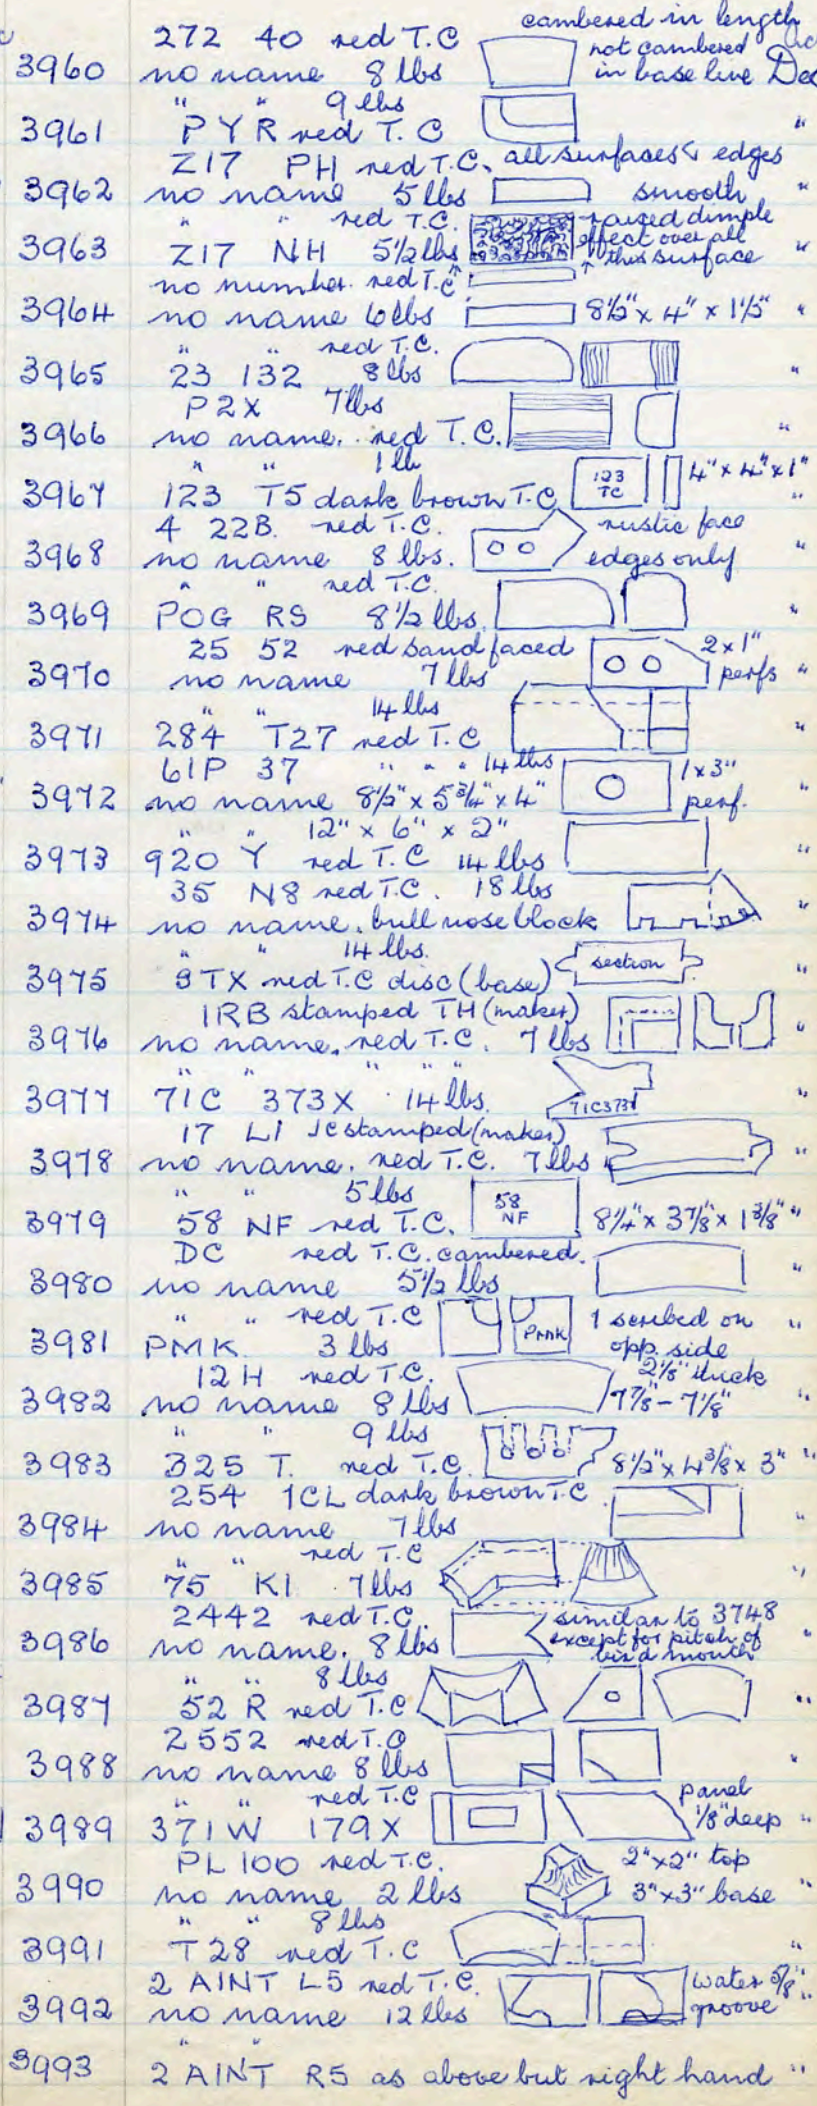 272 40 red T.C cambered in length
3960 no name 8 lbs not cambered in base line Dec
" " 9 lbs
3961 PYR red T.C "
Z17 PH red T.C. all surfaces & edges
3962 no name 5 lbs smooth "
" " red T.C. raised dimple
3963 Z17 NH 5½ lbs effect over all this surface "
no number red T.C
3964 no name 6 lbs 8½" x 4" x 1½" "
" " red T.C.
3965 23 132 8 lbs "
P2X 7 lbs
3966 no name. red T.C. "
" " 1 lb 4" x 4" x 1"
3967 123 T5 dark brown T.C 123 TC "
4 22B. red T.C. rustic face
3968 no name 8 lbs. edges only "
" " red T.C.
3969 POG RS 8½ lbs. "
25 52 red sand faced 2 x 1"
3970 no name 7 lbs perfs "
" " 14 lbs
3971 284 T27 red T.C "
61P 37 " " " 14 lbs 1 x 3"
3972 no name 8½" x 5¾" x 4" perf. "
" " 12" x 6" x 2"
3973 920 Y red T.C 14 lbs "
35 N8 red T.C. 18 lbs
3974 no name. bull nose block "
" " 14 lbs.
3975 9TX red T.C disc (base) section "
1RB stamped TH (maker)
3976 no name. red T.C. 7 lbs "
" " " " "
3977 71C 373X 14 lbs. 71C373X "
17 L1 JC stamped (maker)
3978 no name. red T.C. 7 lbs "
" " 5 lbs
3979 58 NF red T.C. 58 NF 8¼" x 3⅞" x 1⅜" "
DC red T.C. cambered.
3980 no name 5½ lbs "
" " red T.C 1 scribed on "
3981 PMK. 3 lbs PMK opp. side
12H red T.C. 2⅛" thick
3982 no name 8 lbs 7⅞" - 7⅛" "
" " 9 lbs
3983 325 T. red T.C. 8½" x 4⅜ x 3" "
254 1CL dark brown T.C
3984 no name 7 lbs "
" " red T.C
3985 75 K1 7 lbs "
2442 red T.C. similar to 3748
3986 no name. 8 lbs except for pitch of bird mouth "
" " 8 lbs
3987 52 R red T.C "
2552 red T.C
3988 no name 8 lbs "
" " red T.C panel
3989 371W 179X ⅛" deep "
PL 100 red T.C. 2" x 2" top
3990 no name 2 lbs 3" x 3" base "
" " 8 lbs
3991 T28 red T.C "
2 AINT L5 red T.C. water ⅝"
3992 no name 12 lbs groove "
" "
3993 2 AINT R5 as above but right hand "